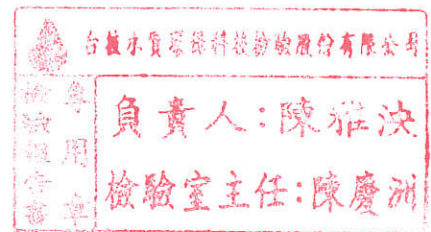 台檢水質環保科技檢驗股份有限公司
檢驗報告書
專用章
負責人：陳雅泱
檢驗室主任：陳慶洲